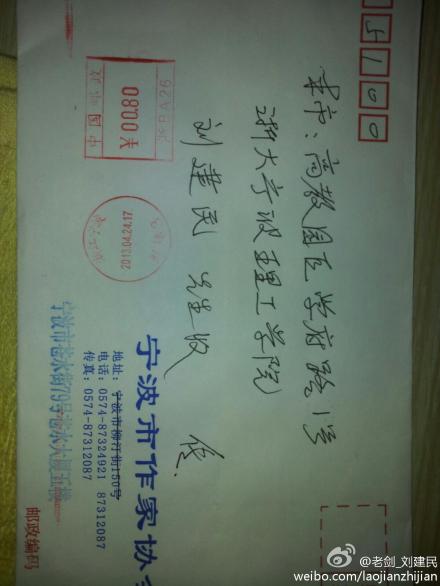 5100
本市:高教园区学府路1号
浙大宁波理工学院
刘建民 先生收
中国邮政
00.80元
2013.04.24.17
宁波市作家协会
地址:宁波市柳汀街150号
电话:0574-87324921 87312087
传真:0574-87312087
宁波市苍水街79号苍水大厦五楼
邮政编码
@老剑_刘建民
weibo.com/laojianzhijian